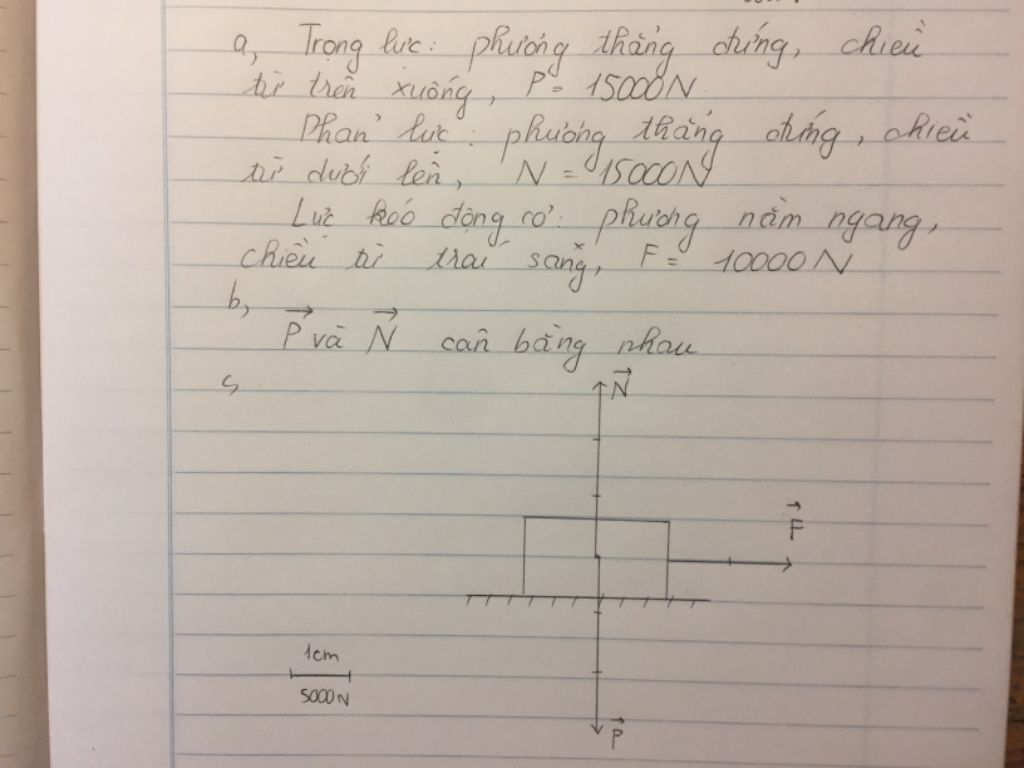 a, Trọng lực: phương thẳng đứng, chiều
từ trên xuống, P = 15000N
Phản lực: phương thẳng đứng, chiều
từ dưới lên, N = 15000N
Lực kéo động cơ: phương nằm ngang,
chiều từ trái sang, F = 10000N
b,
P và N cân bằng nhau
c,
N
F
1cm
5000N
P